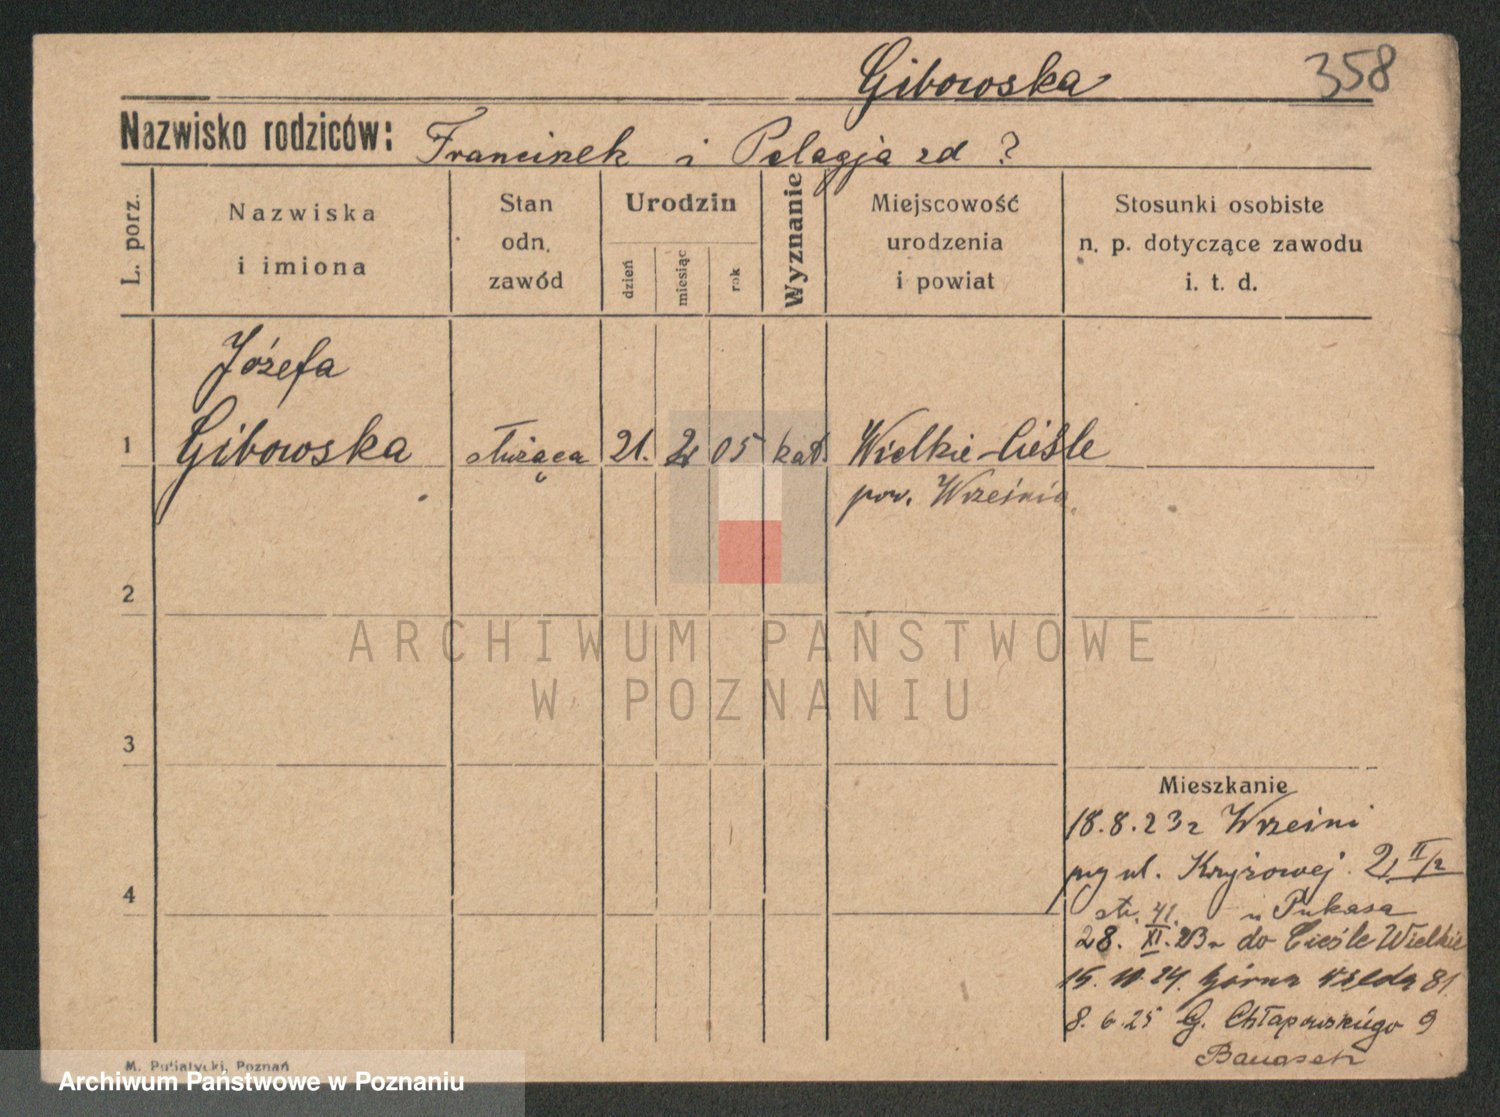 Gibowska 358
Nazwisko rodziców: Franciszek i Pelagja zd ?
L. porz.
Nazwiska
i imiona
Stan
odn.
zawód
Urodzin
dzień
miesiąc
rok
Wyznanie
Miejscowość
urodzenia
i powiat
Stosunki osobiste
n. p. dotyczące zawodu
i. t. d.
Józefa
1 Gibowska służąca 21. 2 05 kat Wielkie-Cieśle
pow. Września
2
ARCHIWUM PAŃSTWOWE
W POZNANIU
3
Mieszkanie
18.8.23 z Wrześni
przy ul. Krzyżowej 2, II/2
str. 41. u Pukasa
28. XI. 23 do Cieśle Wielkie
15. 10. 24. Górna Wilda 81
8. 6. 25 G. Chłapowskiego 9
4
M. Putiatycki, Poznań
Archiwum Państwowe w Poznaniu